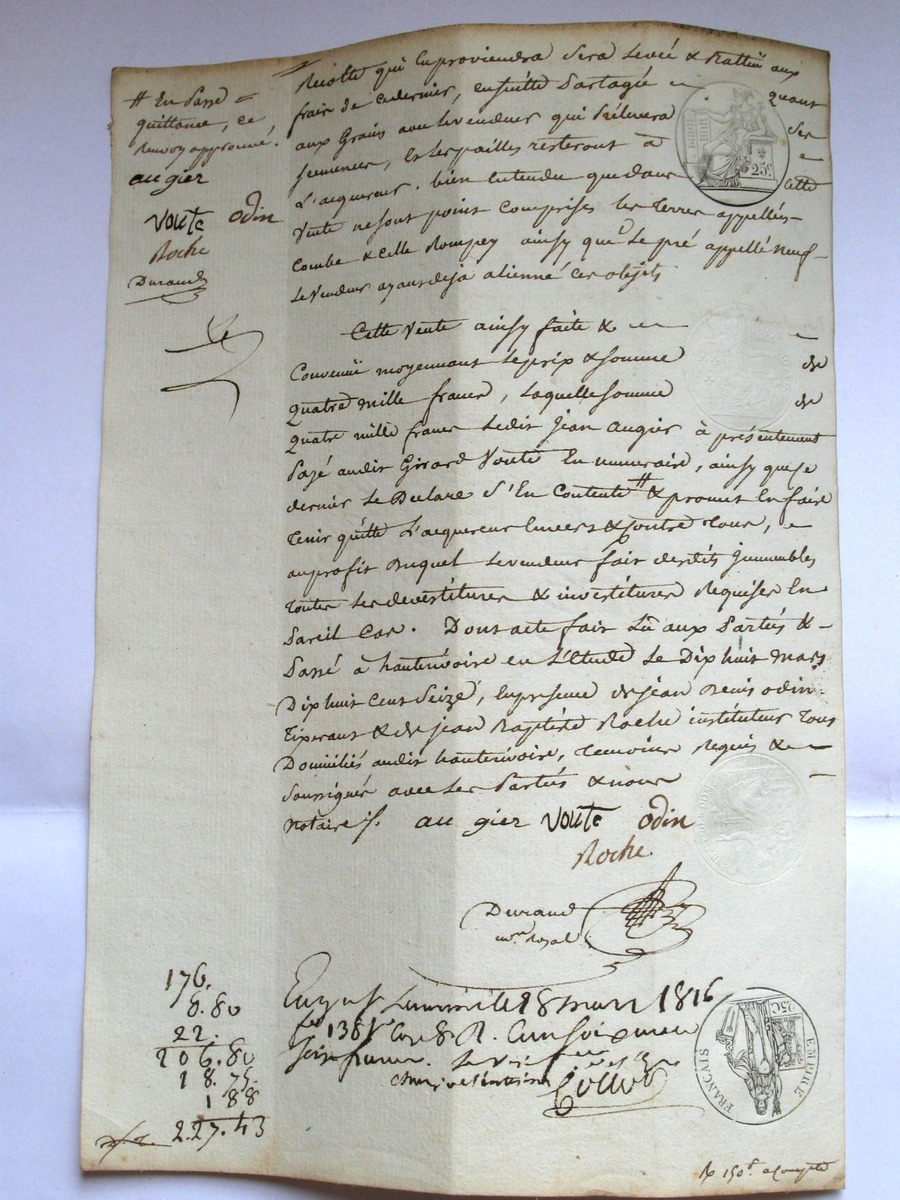 # En Passé =
quittance, ce
Renvoy approuvé.
au gier
Voute odin
Roche
Durand
Recolte qui Enproviendra Sera Levée & Battüe aux
frais de cedernier, ensuitte Partagée quant
aux Grains avec levendeur qui Prélevera Ses
Semences, & les pailles resteront à
L'acquereur. bien Entendu que dans Cette
Vente ne sont point Comprises les Terres appellés
Combe & celle Rompey ainsy que le pré appellé neuf
le Vendeur ayant deja alienné ces objets
Cette Vente ainsy faite &
Convenüe moyennant le prix & Somme de
Quatre mille francs, laquelle Somme de
quatre mille francs ledit Jean Augier à présentement
Payé audit Girard Voute En numeraire, ainsy que ce
dernier le Declare S'En Contente # & promet En faire
Tenir quitte L'acquereur Envers & Contre Tous,
au profit duquel le vendeur fait desdits jmmeubles
Toutes les devestitures & investitures Requises En
Pareil Cas. Dont acte fait Lû aux Parties &
Passé à hautervoire en L'Etude le Dix huit mars
Dix huit Cent Seize, En presence de jean Denis odin
Tixerant & de jean Baptiste Roche instituteur Tous
Domiciliés audit hautervoire, Temoins Requis &
Soussignés avec les Parties & nous
Notaire ./. au gier Voute odin
Roche
Durand
nre royal
176.
8.80
22.
206.80
18.75
1 88
227.43
le 28 mars 1816
fo 138 Vo Case 8 R. Cent Soixante
Seize francs.
25C.
EMPIRE FRANÇAIS
25C
R 150f. acompte